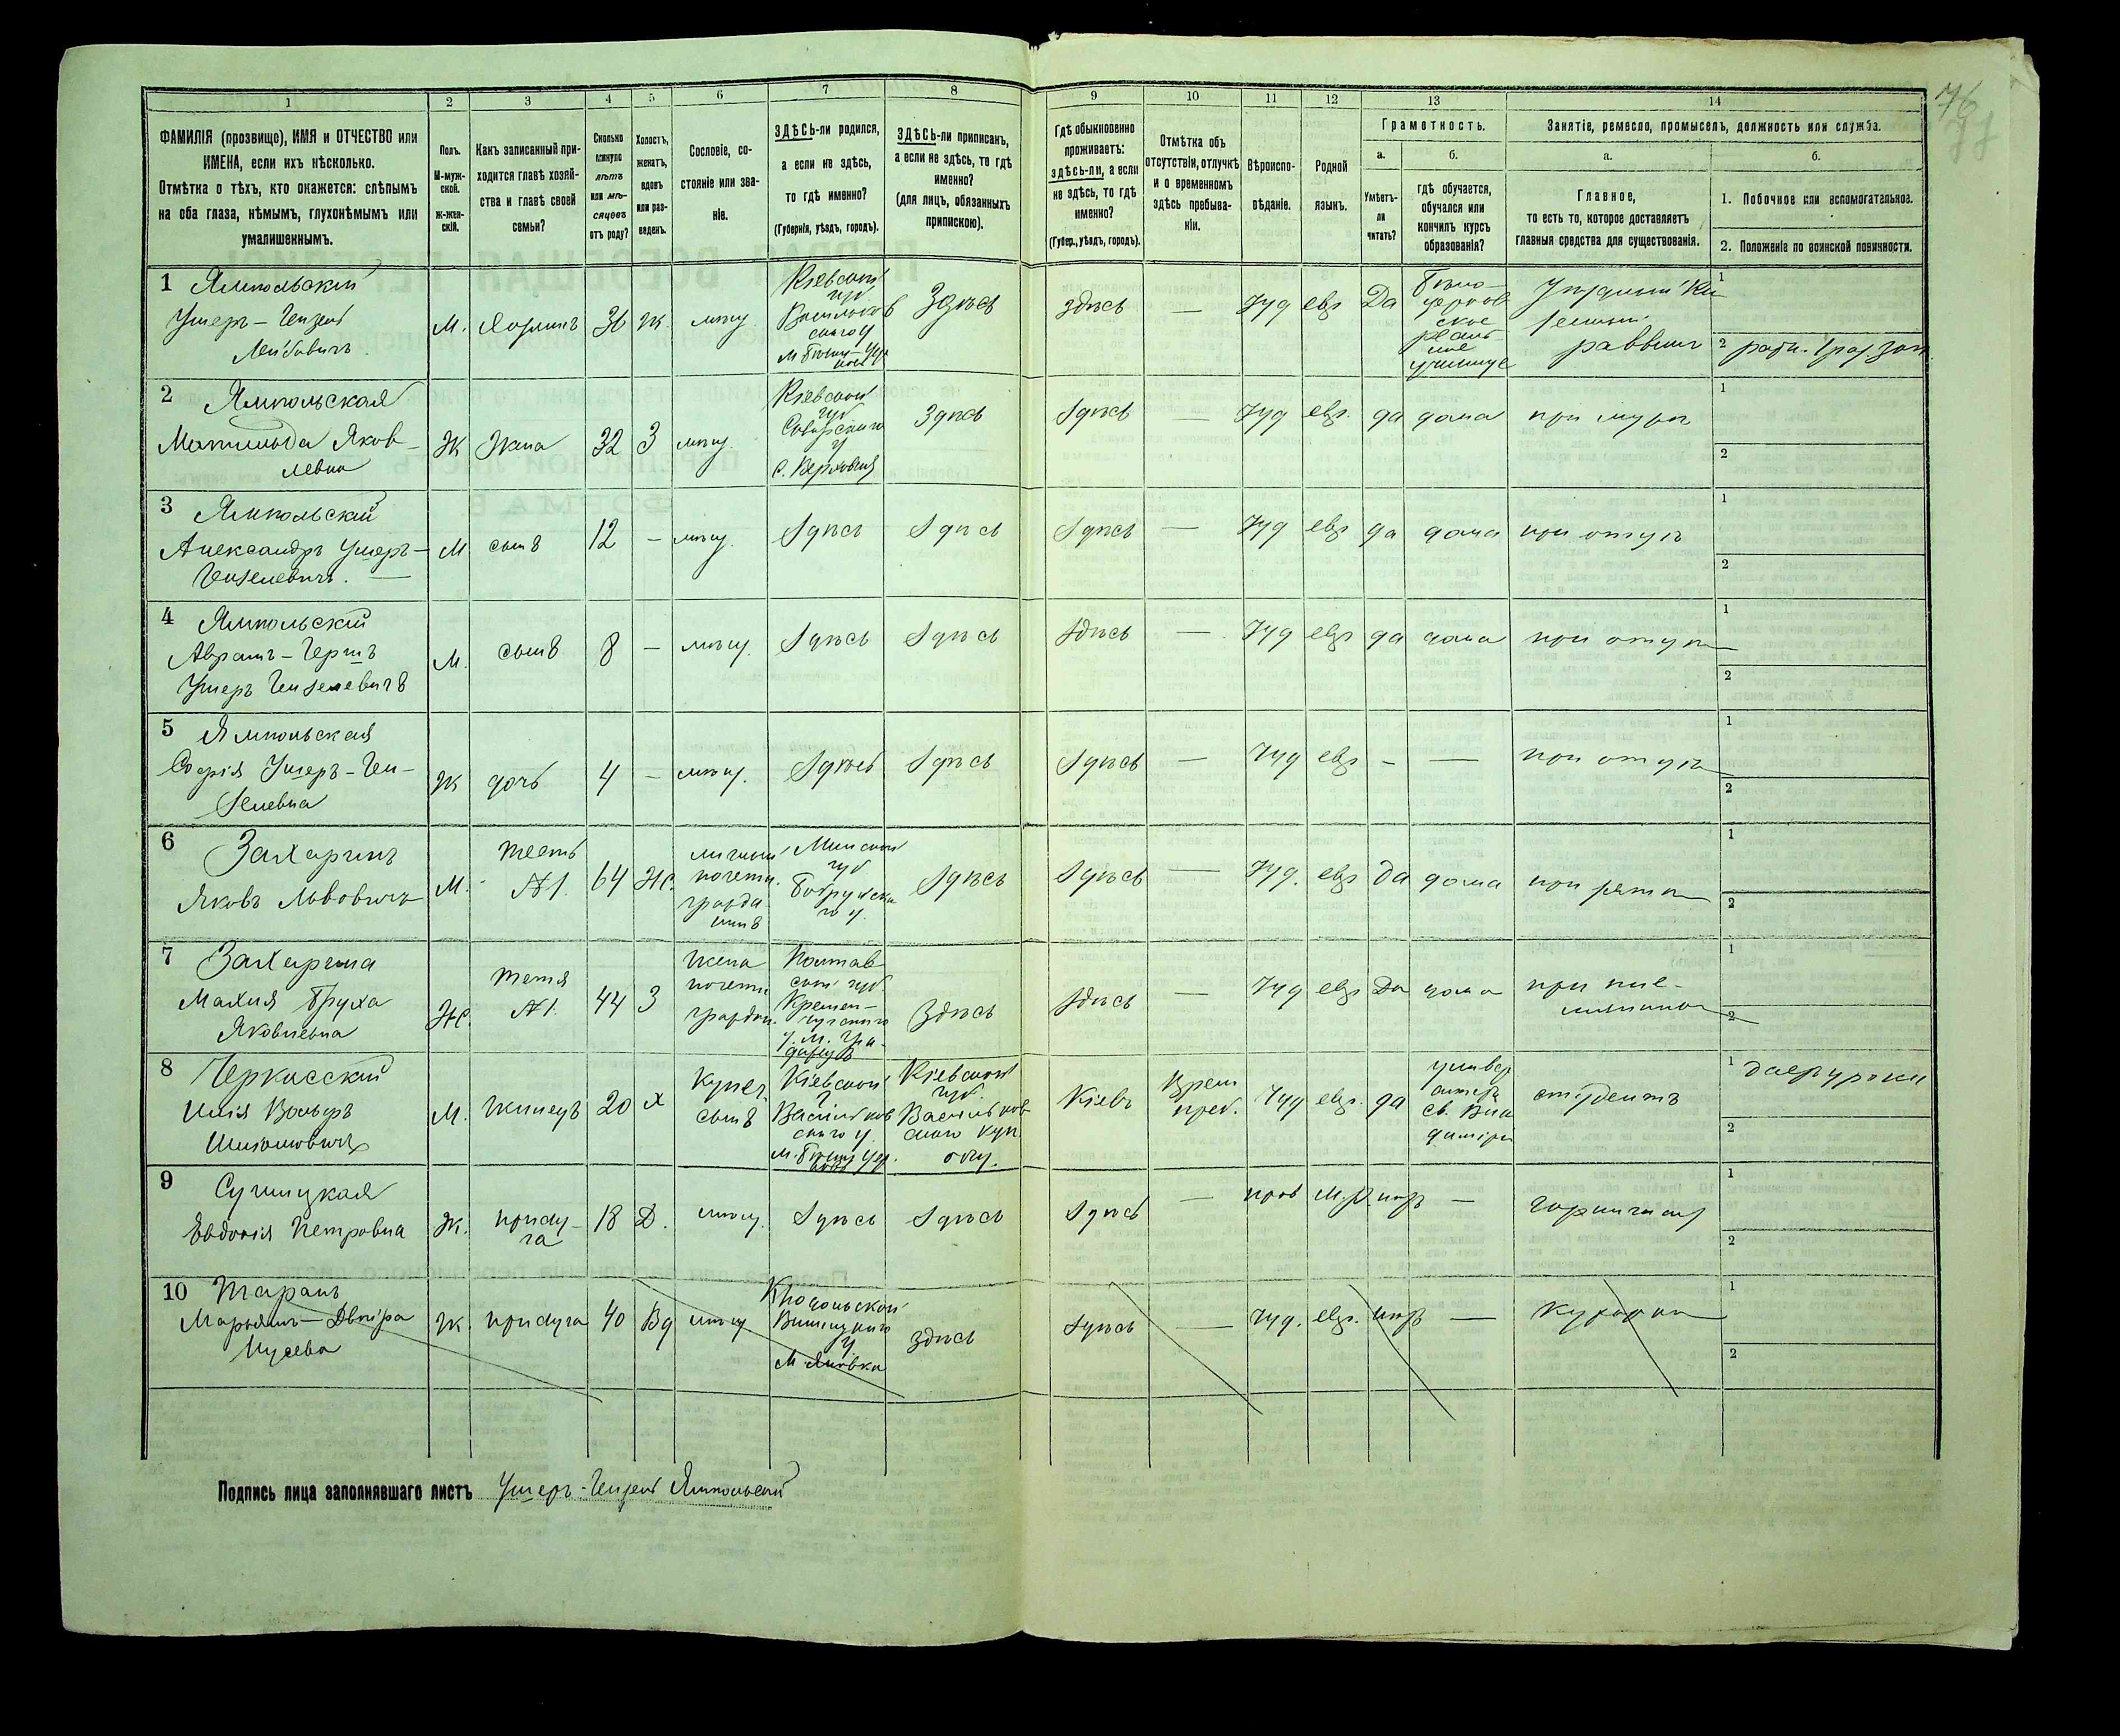 76
77
1 2 3 4 5 6 7 8 9 10 11 12 13 14
ФАМИЛІЯ (прозвище), ИМЯ и ОТЧЕСТВО или
ИМЕНА, если ихъ нѣсколько.
Отмѣтка о тѣхъ, кто окажется: слѣпымъ
на оба глаза, нѣмымъ, глухонѣмымъ или
умалишеннымъ.
Полъ.
М-муж-
ской.
ж-жен-
скій.
Какъ записанный при-
ходится главѣ хозяй-
ства и главѣ своей
семьи?
Сколько
минуло
лѣтъ
или мѣ-
сяцевъ
отъ роду?
Холостъ,
женатъ,
вдовъ
или раз-
веденъ.
Сословіе, со-
стояніе или зва-
ніе.
ЗДѢСЬ-ли родился,
а если не здѣсь,
то гдѣ именно?
(Губернія, уѣздъ, городъ).
ЗДѢСЬ-ли приписанъ,
а если не здѣсь, то гдѣ
именно?
(для лицъ, обязанныхъ
припискою).
Гдѣ обыкновенно
проживаетъ:
здѣсь-ли, а если
не здѣсь, то гдѣ
именно?
(Губер., уѣздъ, городъ).
Отмѣтка объ
отсутствіи, отлучкѣ
и о временномъ
здѣсь пребыва-
ніи.
Вѣроиспо-
вѣданіе.
Родной
языкъ.
Грамотность.
а.
Умѣетъ-
ли
читать?
б.
гдѣ обучается,
обучался или
кончилъ курсъ
образованія?
Занятіе, ремесло, промыселъ, должность или служба.
а.
Главное,
то есть то, которое доставляетъ
главныя средства для существованія.
б.
1. Побочное или вспомогательное.
2. Положеніе по воинской повинности.
1 Ямпольскій
Ушеръ-Гензель
Лейбовичъ
М. Хозяинъ 36 Ж. мѣщ.
Кіевской
губ
Васильков
скаго у
м. Бѣлая-Цер
ковь
Здѣсь
здѣсь — Іуд евр Да
Бѣло-
церков
ское
реаль
ное
училище
раввинъ
1
2
2 Ямпольская
Матильда Яков-
левна
Ж Жена 32 З мѣщ.
Кіевской
губ
у
Здѣсь
Здѣсь — Іуд евр. да дома при мужѣ
1
2
3 Ямпольскій
Александръ Ушеръ-
Гензелевичъ.
М сынъ 12 — мѣщ. Здѣсь Здѣсь
Здѣсь — Іуд евр да дома при отцѣ
1
2
4 Ямпольскій
Аврамъ-Гершъ
Ушеръ Гензелевичъ
М. сынъ 8 — мѣщ. Здѣсь Здѣсь
Здѣсь — Іуд евр да дома при отцѣ
1
2
5 Ямпольская
Софія Ушеръ-Ген-
зелевна
Ж дочь 4 — мѣщ. Здѣсь Здѣсь
Здѣсь — Іуд евр — — при отцѣ
1
2
6 Захаринъ
Яковъ Львовичъ
М. тесть
№1. 64 Ж.
личный
почетн.
гражда
нинъ
Минской
губ
Бобруйска
го у.
Здѣсь
Здѣсь — Іуд. евр да дома при зятѣ
1
2
7 Захарина
Малия Бруха
Яковлевна
Ж. тетя
№1. 44 З
жена
почетн.
граждан.
Полтав
ской губ
Кремен-
чугскаго
у. м. Гра-
дижск
Здѣсь
Здѣсь — Іуд евр Да дома
при пле-
мянникѣ
1
2
8 Черкасский
Илія Вольфъ
М. Жилецъ 20 х
Купеч.
сынъ
Кіевской
г
Васильков
скаго у
м. Бѣлая Цер.
ковь
Кіевской
губ.
Васильков
скаго куп.
общ.
Кіевъ
Врем
преб. Іуд евр. да
универ
ситет
Св. Вла
диміра
студентъ
1 даетъ уроки
2
9
Евдокія Петровна
Ж. прислу-
га 18 Д. мѣщ. Здѣсь Здѣсь
Здѣсь — прав М.р. негр — горничная
1
2
10 Таранъ
Марьямъ-Двойра
Мусева
Ж. прислуга 40 Вд мѣщ
Подольской
Винницкаго
у
м. Яновка
здѣсь
Здѣсь — Іуд. евр. негр — Кухарка
1
2
Подпись лица заполнявшаго листъ Ушеръ-Гензель Ямпольскій